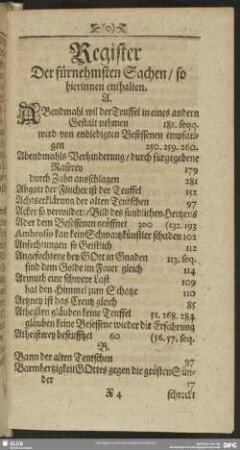 Register
Der fürnehmsten Sachen / so
hierinnen enthalten.
A.
ABendmahl wil der Teuffel in eines andern
Gestalt nehmen 181. seqq.
wird von endledigten Besessenen empfan-
gen 250. 259. 260.
Abendmahls Verhinderung / durch fürgegebene
Raserey 179
durch Zahn ausschlagen 281
Abgott der Flucher ist der Teuffel 151
Achtserklärung der alten Teutschen 97
Acker so verwildet / Bild des sündlichen Hertzens
Ader dem Besessenen eröffnet 300 (132. 193
Ambrosio kan kein Schwartzkünstler schaden 102
Anfechtungen so Geistlich 112
Angefochtene bey GOtt in Gnaden 113. seq.
sind dem Golde im Feuer gleich 114
Armuth eine schwere Last 109
hat den Himmel zum Schatze 110
Artzney ist das Creutz gleich 85
Atheisten gläuben keine Teuffel 51. 168. 284
gläuben keine Besessene wieder die Erfahrung
Atheisterey bestufftet 60 (56. 57. seq.
B.
Bann der alten Teutschen 97
Barmhertzigkeit GOttes gegen die größten Sün-
der 17
X 4 schreckt